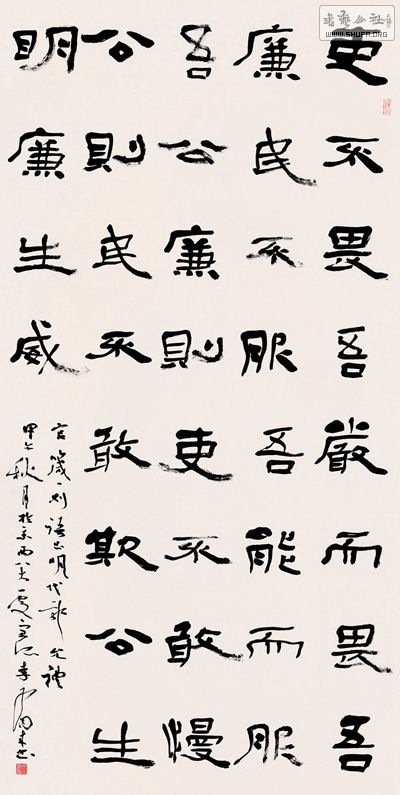 吏不畏吾嚴而畏吾
廉民不服吾能而服
吾公廉則吏不敢慢
公則民不敢欺公生
明廉生威
官箴一則語出明代郭允禮
甲午秋月於京西八大處
書藝公社
WWW.SHUFA.ORG